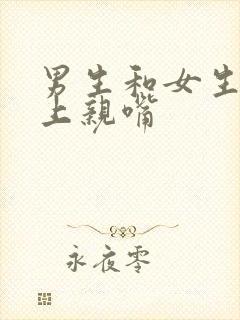 男生和女生
上亲嘴
永夜零